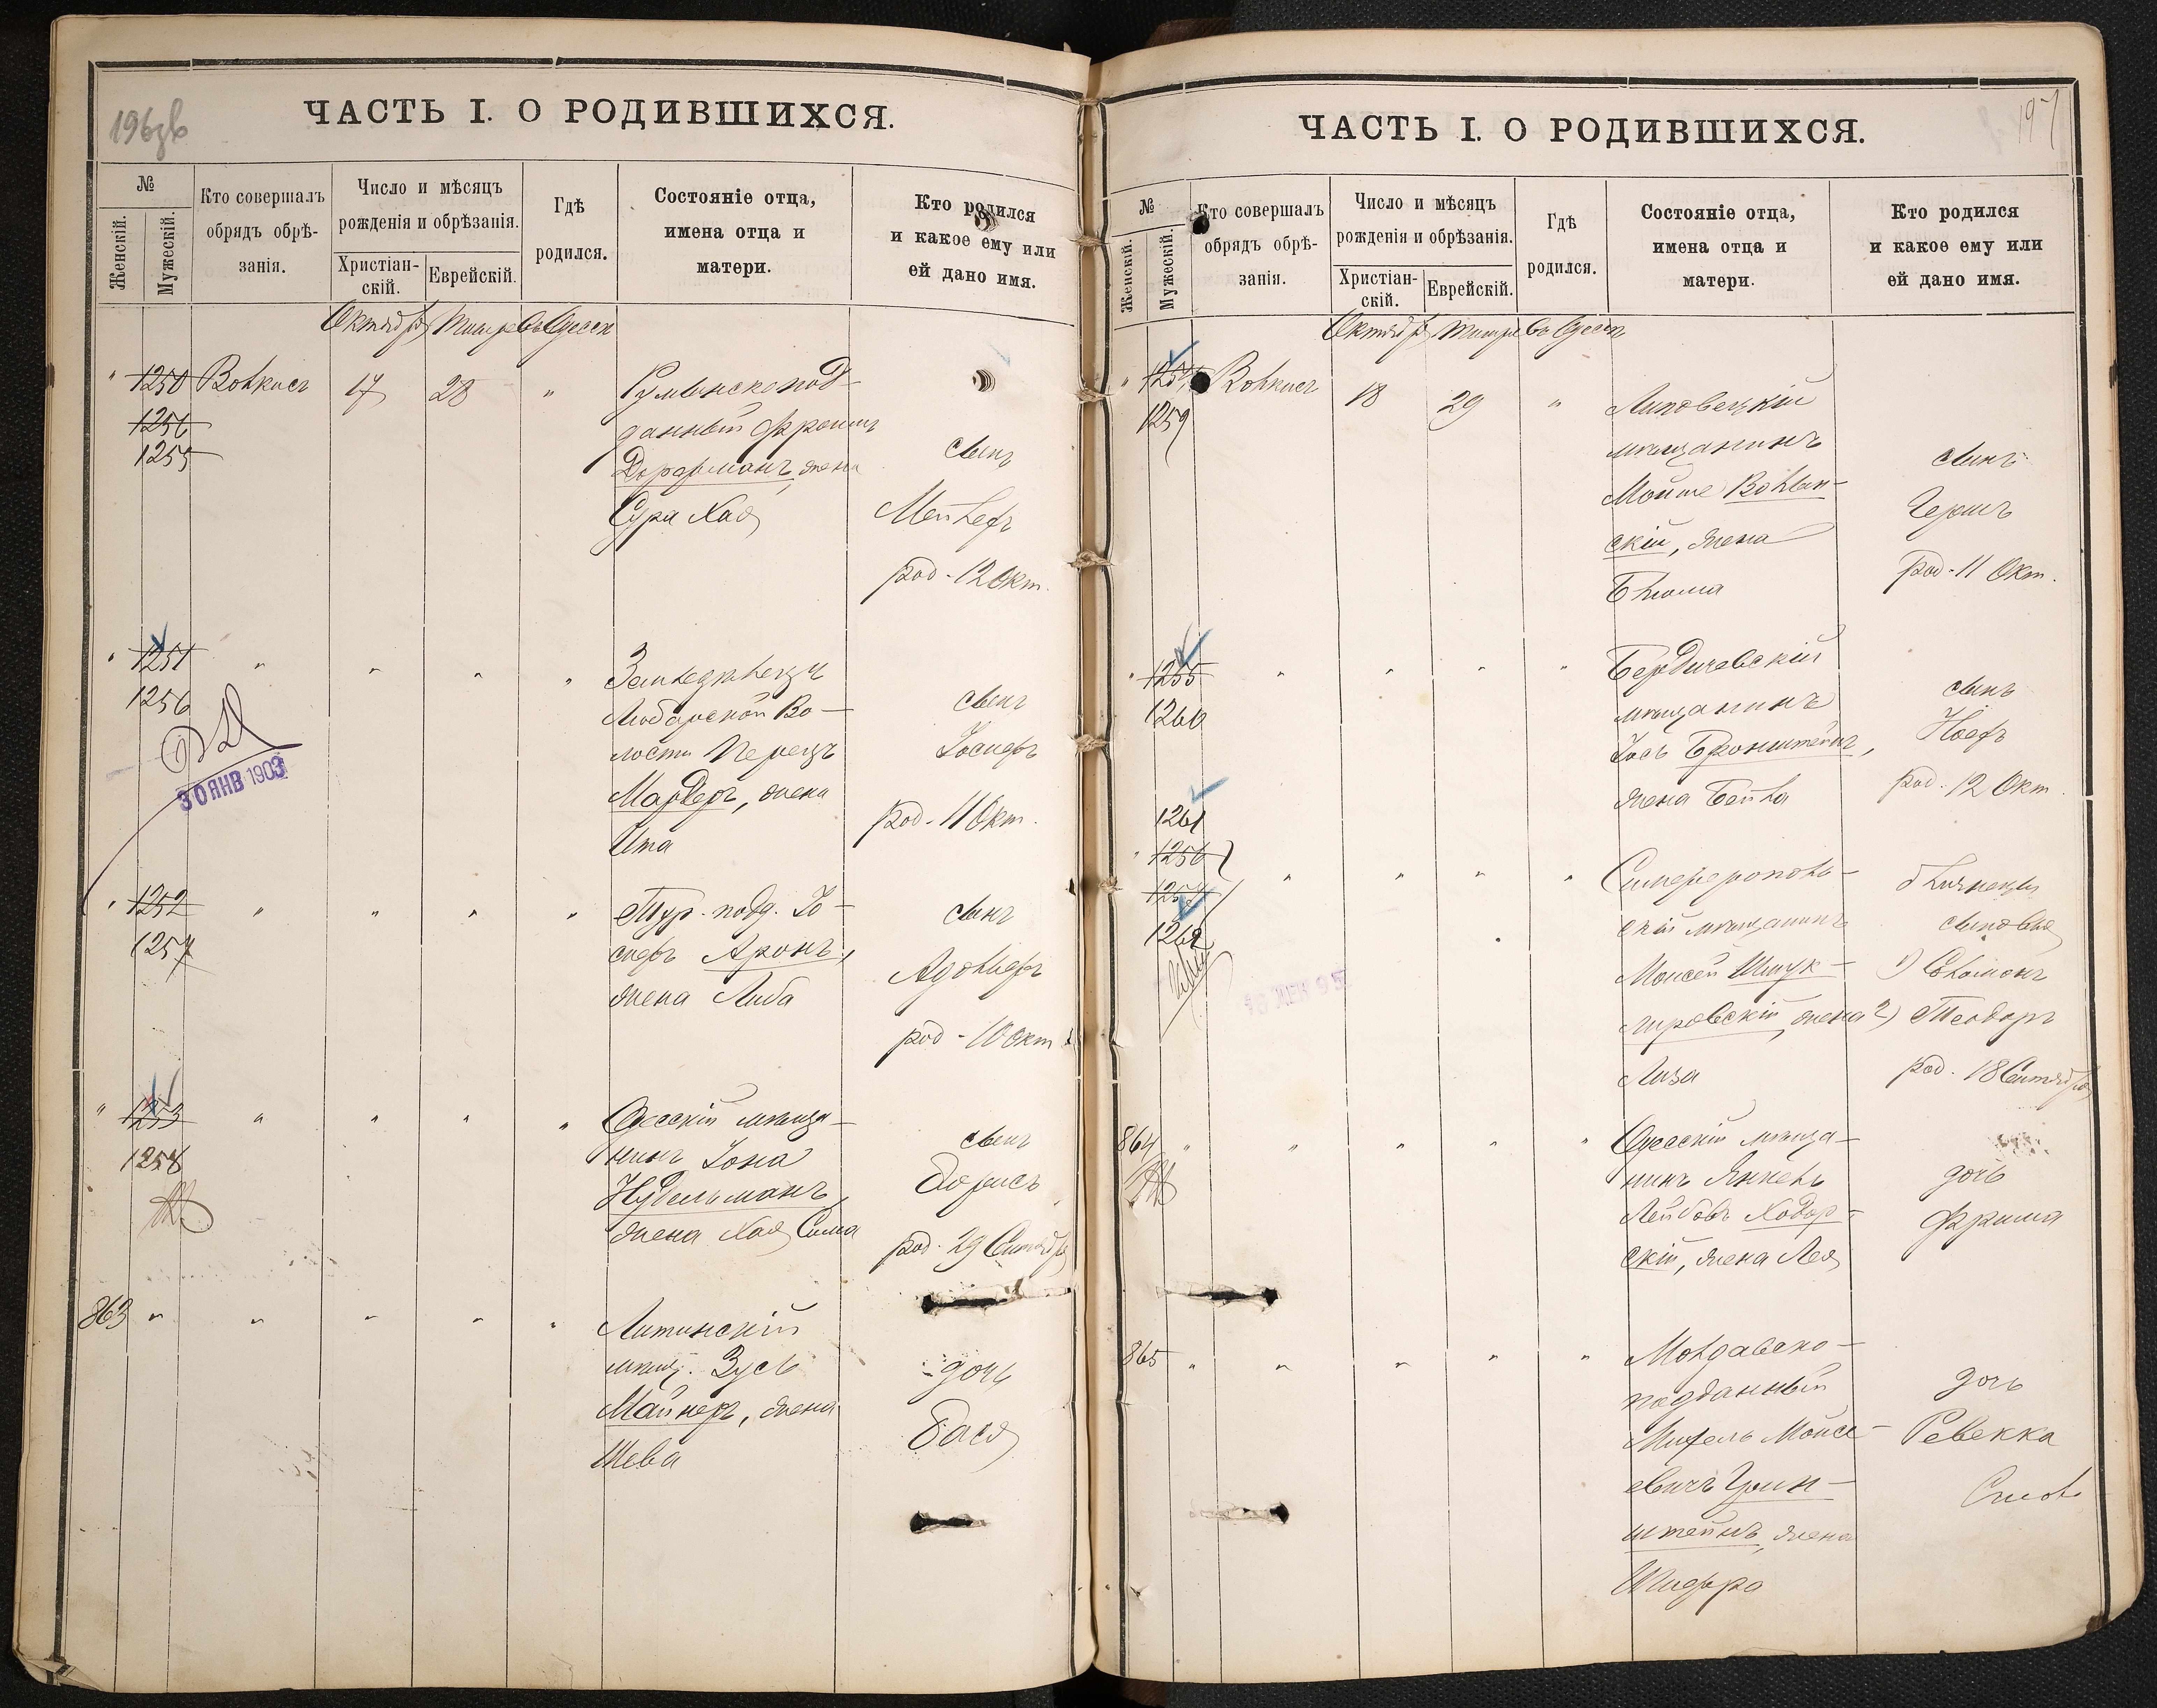 196зв
ЧАСТЬ I. О РОДИВШИХСЯ.
№
Женскій.
Мужескій.
Кто совершалъ
обрядъ обрѣ-
занія.
Число и мѣсяцъ
рожденія и обрѣзанія.
Христіан-
скій.
Еврейскій.
Гдѣ
родился.
Состояніе отца,
имена отца и
матери.
Кто родился
и какое ему или
ей дано имя.
Октября Тишре въ Одессѣ
" 1250 Волкисъ 17 28 "
1256
1255
Румынско под-
данный Фроимъ
Дорфманъ, жена
Сура Хая
сынъ
Мейлехъ
род. 12 Окт.
" 1251 " " " "
1256
30 ЯНВ 1903
Земледѣлецъ
Любарской Во-
лости Перецъ
Мардеръ, жена
Ита
сынъ
Іосифъ
род. 11 Окт.
" 1252 " " " "
1257
Тур. подд. Іо-
сифъ Аронъ,
жена Либа
сынъ
Адольфъ
род. 10 Окт.
" 1253 " " " "
1258
Одесскій мѣща-
нинъ Іона
Нудельманъ,
жена Хая Сима
сынъ
Борисъ
род. 29 Сентября
863 " " " " "
Литинскій
мѣщ. Зусь
Майнеръ, жена
Шева
дочь
Бася
197
ЧАСТЬ I. О РОДИВШИХСЯ.
№
Женскій.
Мужескій.
Кто совершалъ
обрядъ обрѣ-
занія.
Число и мѣсяцъ
рожденія и обрѣзанія.
Христіан-
скій.
Еврейскій.
Гдѣ
родился.
Состояніе отца,
имена отца и
матери.
Кто родился
и какое ему или
ей дано имя.
Октября Тишре въ Одессѣ
" 1254 Волкисъ 18 29 "
1259
Липовецкій
мѣщанинъ
Мойше Волын-
скій, жена
Блюма
сынъ
Гершъ
род. 11 Окт.
" 1255 " " " "
1260
Бердичевскій
мѣщанинъ
Іось Бронштейнъ,
жена Бейла
сынъ
Ноехъ
род. 12 Окт.
1261
" 1256 " " " "
1257
1262
Симферополь-
скій мѣщанинъ
Моисей Шпук-
лировскій, жена
Лиза
близнецы
сыновья
1) Соломонъ
2) Теодоръ
род. 18 Сентября
864 " " " " "
Одесскій мѣща-
нинъ Янкель
Лейбовъ Ходор-
скій, жена Лея
дочь
Фрима
865 " " " " "
Молдавско-
подданный
Михель Мойсе-
евичъ Грин-
штейнъ, жена
Шифра
дочь
Ревекка